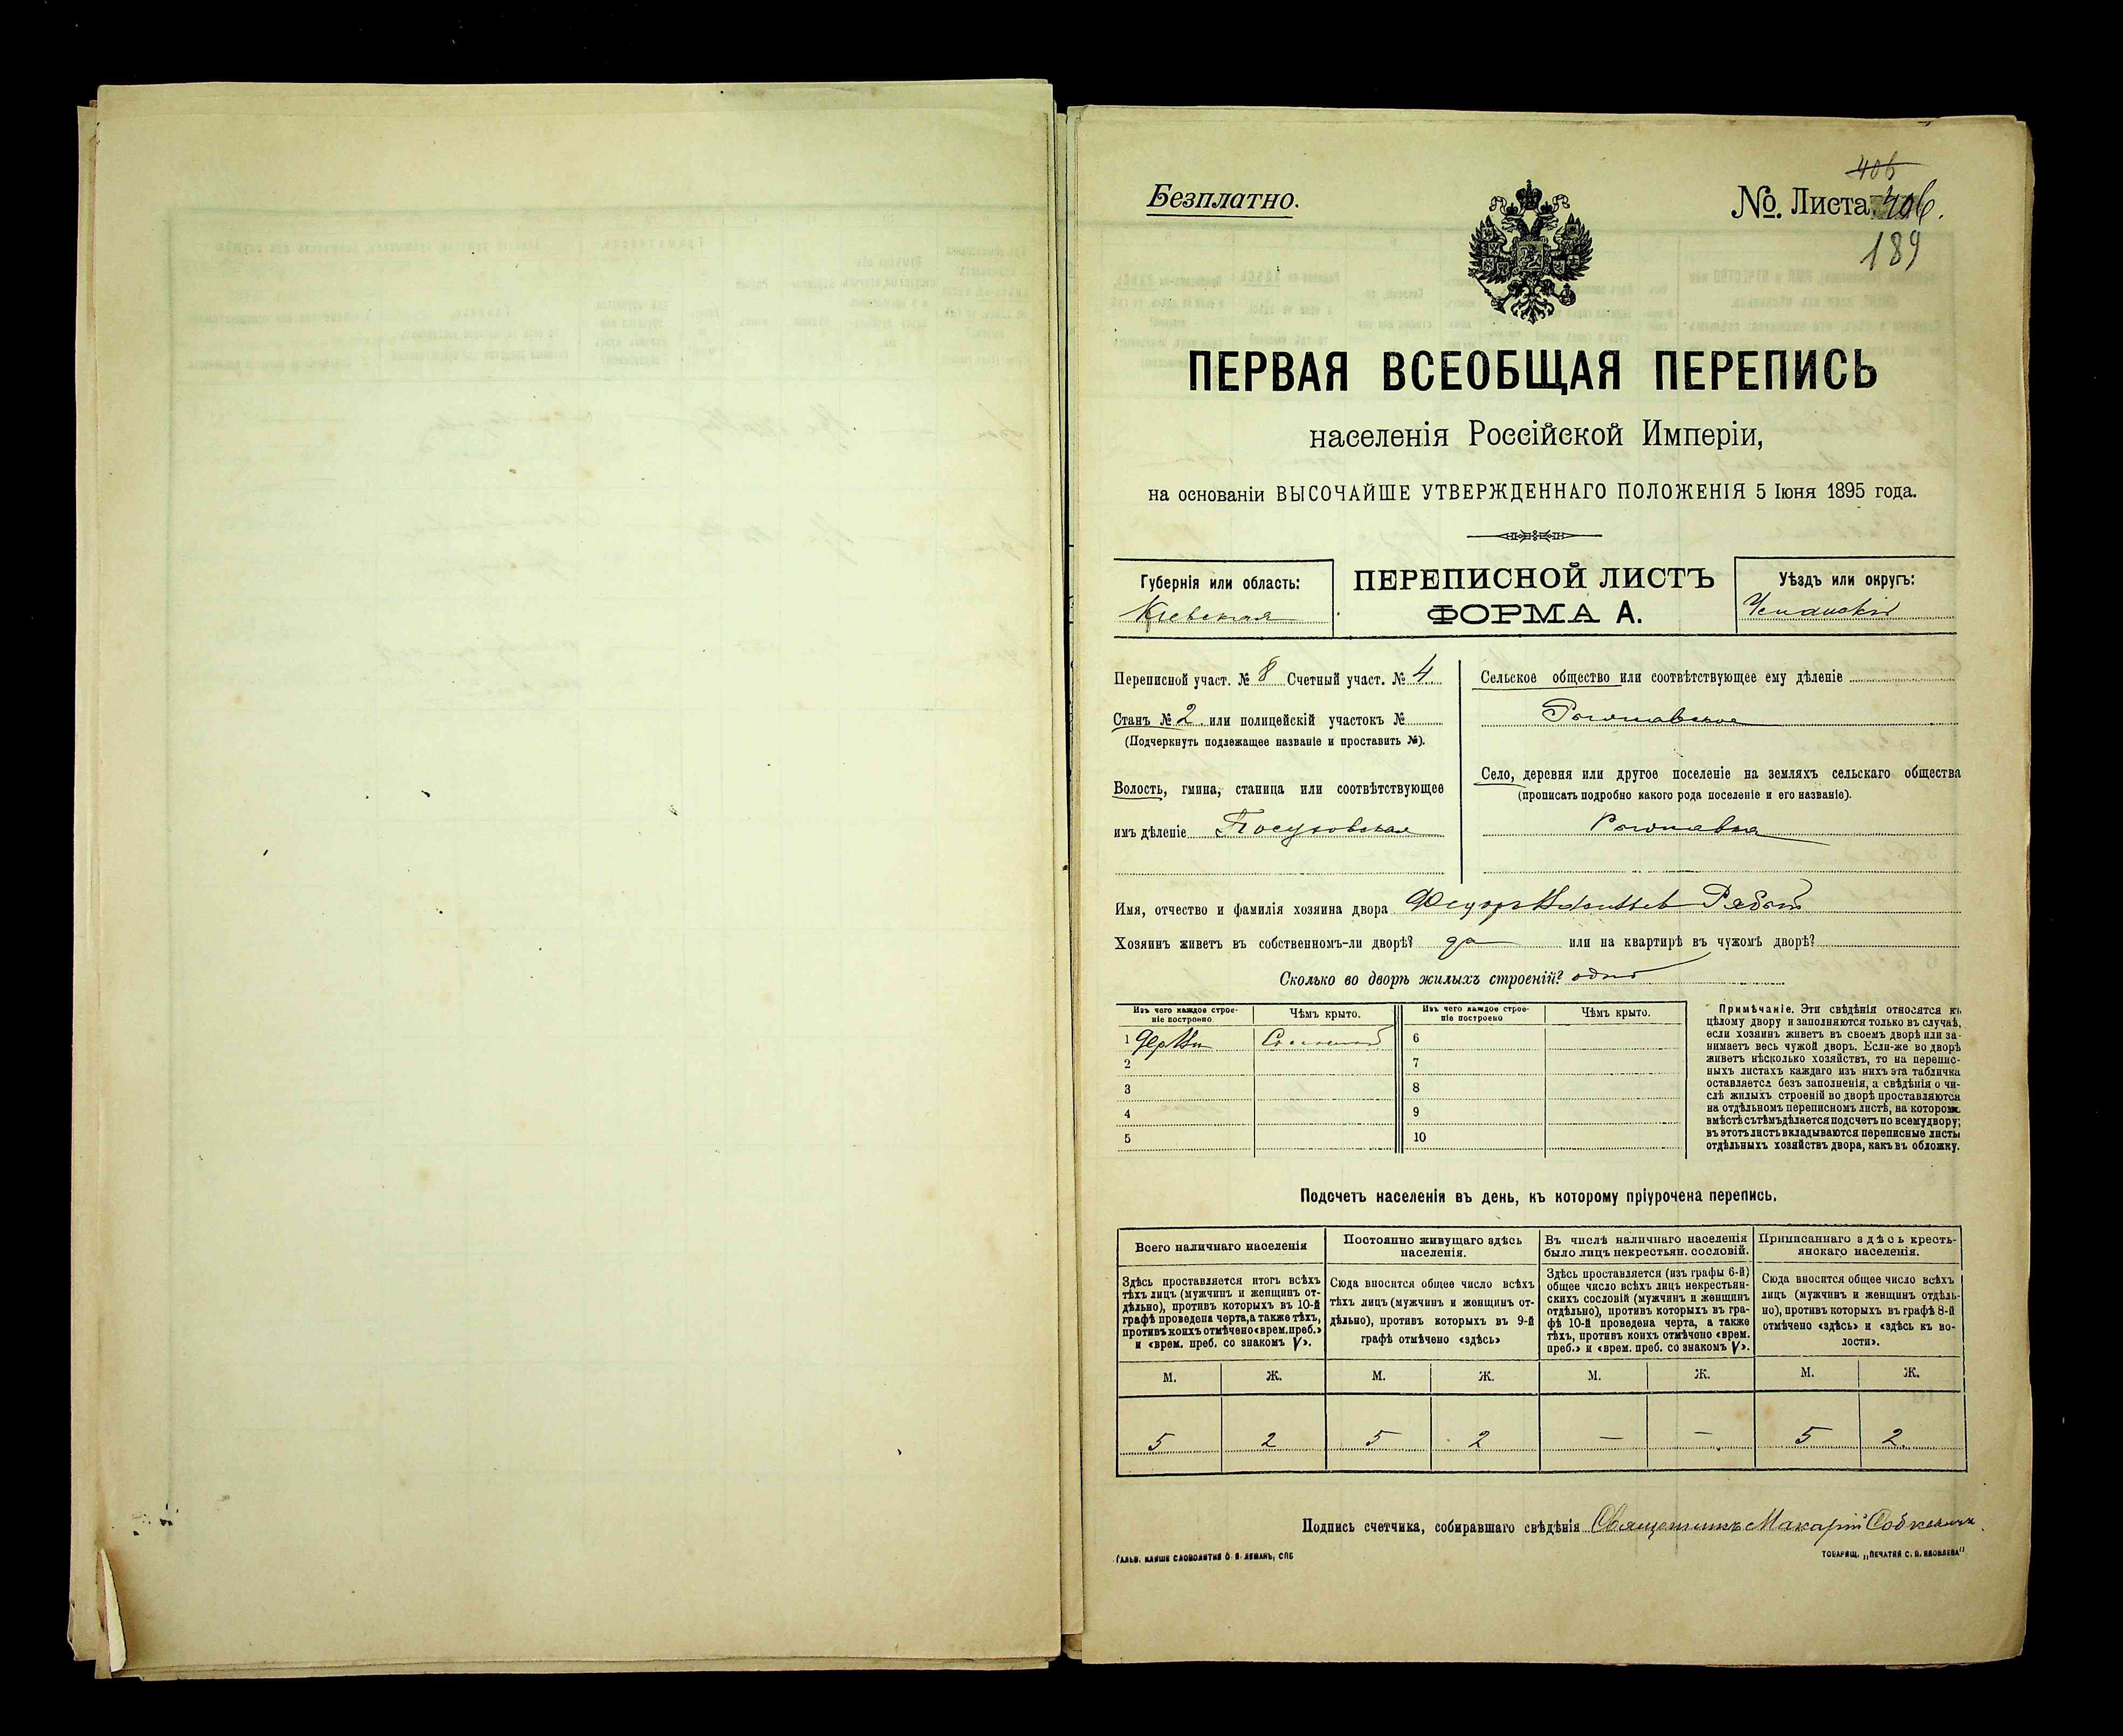 Безплатно.
406
№. Листа 406.
189
ПЕРВАЯ ВСЕОБЩАЯ ПЕРЕПИСЬ
населенія Россійской Имперіи,
на основаніи ВЫСОЧАЙШЕ УТВЕРЖДЕННАГО ПОЛОЖЕНІЯ 5 Іюня 1895 года.
Губернія или область:
Кіевская
ПЕРЕПИСНОЙ ЛИСТЪ
ФОРМА А.
Уѣздъ или округъ:
Уманскій
Переписной участ. № 8 Счетный участ. № 4
Станъ № 2 или полицейскій участокъ №
(Подчеркнуть подлежащее названіе и проставить №).
Волость, гмина, станица или соотвѣтствующее
имъ дѣленіе Посуховская
Сельское общество или соотвѣтствующее ему дѣленіе
Село, деревня или другое поселеніе на земляхъ сельскаго общества
(прописать подробно какого рода поселеніе и его названіе).
Имя, отчество и фамилія хозяина двора Федоръ Рябой
Хозяинъ живетъ въ собственномъ-ли дворѣ? да или на квартирѣ въ чужомъ дворѣ?
Сколько во дворѣ жилыхъ строеній? одно
Изъ чего каждое строе-
ніе построено
Чѣмъ крыто.
Изъ чего каждое строе-
ніе построено
Чѣмъ крыто.
1 Соломой 6
2 7
3 8
4 9
5 10
Примѣчаніе. Эти свѣдѣнія относятся къ
цѣлому двору и заполняются только въ случаѣ,
если хозяинъ живетъ въ своемъ дворѣ или за-
нимаетъ весь чужой дворъ. Если-же во дворѣ
живетъ нѣсколько хозяйствъ, то на перепис-
ныхъ листахъ каждаго изъ нихъ эта табличка
оставляется безъ заполненія, а свѣдѣнія о чи-
слѣ жилыхъ строеній во дворѣ проставляются
на отдѣльномъ переписномъ листѣ, на которомъ
вмѣстѣ съ тѣмъ дѣлается подсчетъ по всему двору;
въ этотъ листъ вкладываются переписные листы
отдѣльныхъ хозяйствъ двора, какъ въ обложку.
Подсчетъ населенія въ день, къ которому пріурочена перепись.
Всего наличнаго населенія
Здѣсь проставляется итогъ всѣхъ
тѣхъ лицъ (мужчинъ и женщинъ от-
дѣльно), противъ которыхъ въ 10-й
графѣ проведена черта, а также тѣхъ,
противъ коихъ отмѣчено «врем. преб.»
и «врем. преб. со знакомъ V».
Постоянно живущаго здѣсь
населенія.
Сюда вносится общее число всѣхъ
тѣхъ лицъ (мужчинъ и женщинъ от-
дѣльно), противъ которыхъ въ 9-й
графѣ отмѣчено «здѣсь»
Въ числѣ наличнаго населенія
было лицъ некрестьян. сословій.
Здѣсь проставляется (изъ графы 6-й)
общее число всѣхъ лицъ некрестьян-
скихъ сословій (мужчинъ и женщинъ
отдѣльно), противъ которыхъ въ гра-
фѣ 10-й проведена черта, а также
тѣхъ, противъ коихъ отмѣчено «врем.
преб.» и «врем. преб. со знакомъ V».
Приписаннаго здѣсь кресть-
янскаго населенія.
Сюда вносится общее число всѣхъ
лицъ (мужчинъ и женщинъ отдѣль-
но), противъ которыхъ въ графѣ 8-й
отмѣчено «здѣсь» и «здѣсь къ во-
лости».
М. Ж. М. Ж. М. Ж. М. Ж.
5 2 5 2 — — 5 2
Подпись счетчика, собиравшаго свѣдѣнія Священникъ Макарій Собкевичъ
ТОВАРИЩ. „ПЕЧАТНЯ С. П. ЯКОВЛЕВА"